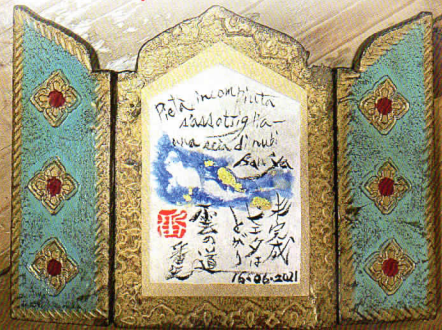 Pietà incompiuta
s'assottiglia—
una scia di nubi
Ban'ya
未完成
ピエタは
とがり
雲の道
番
16.06.2021